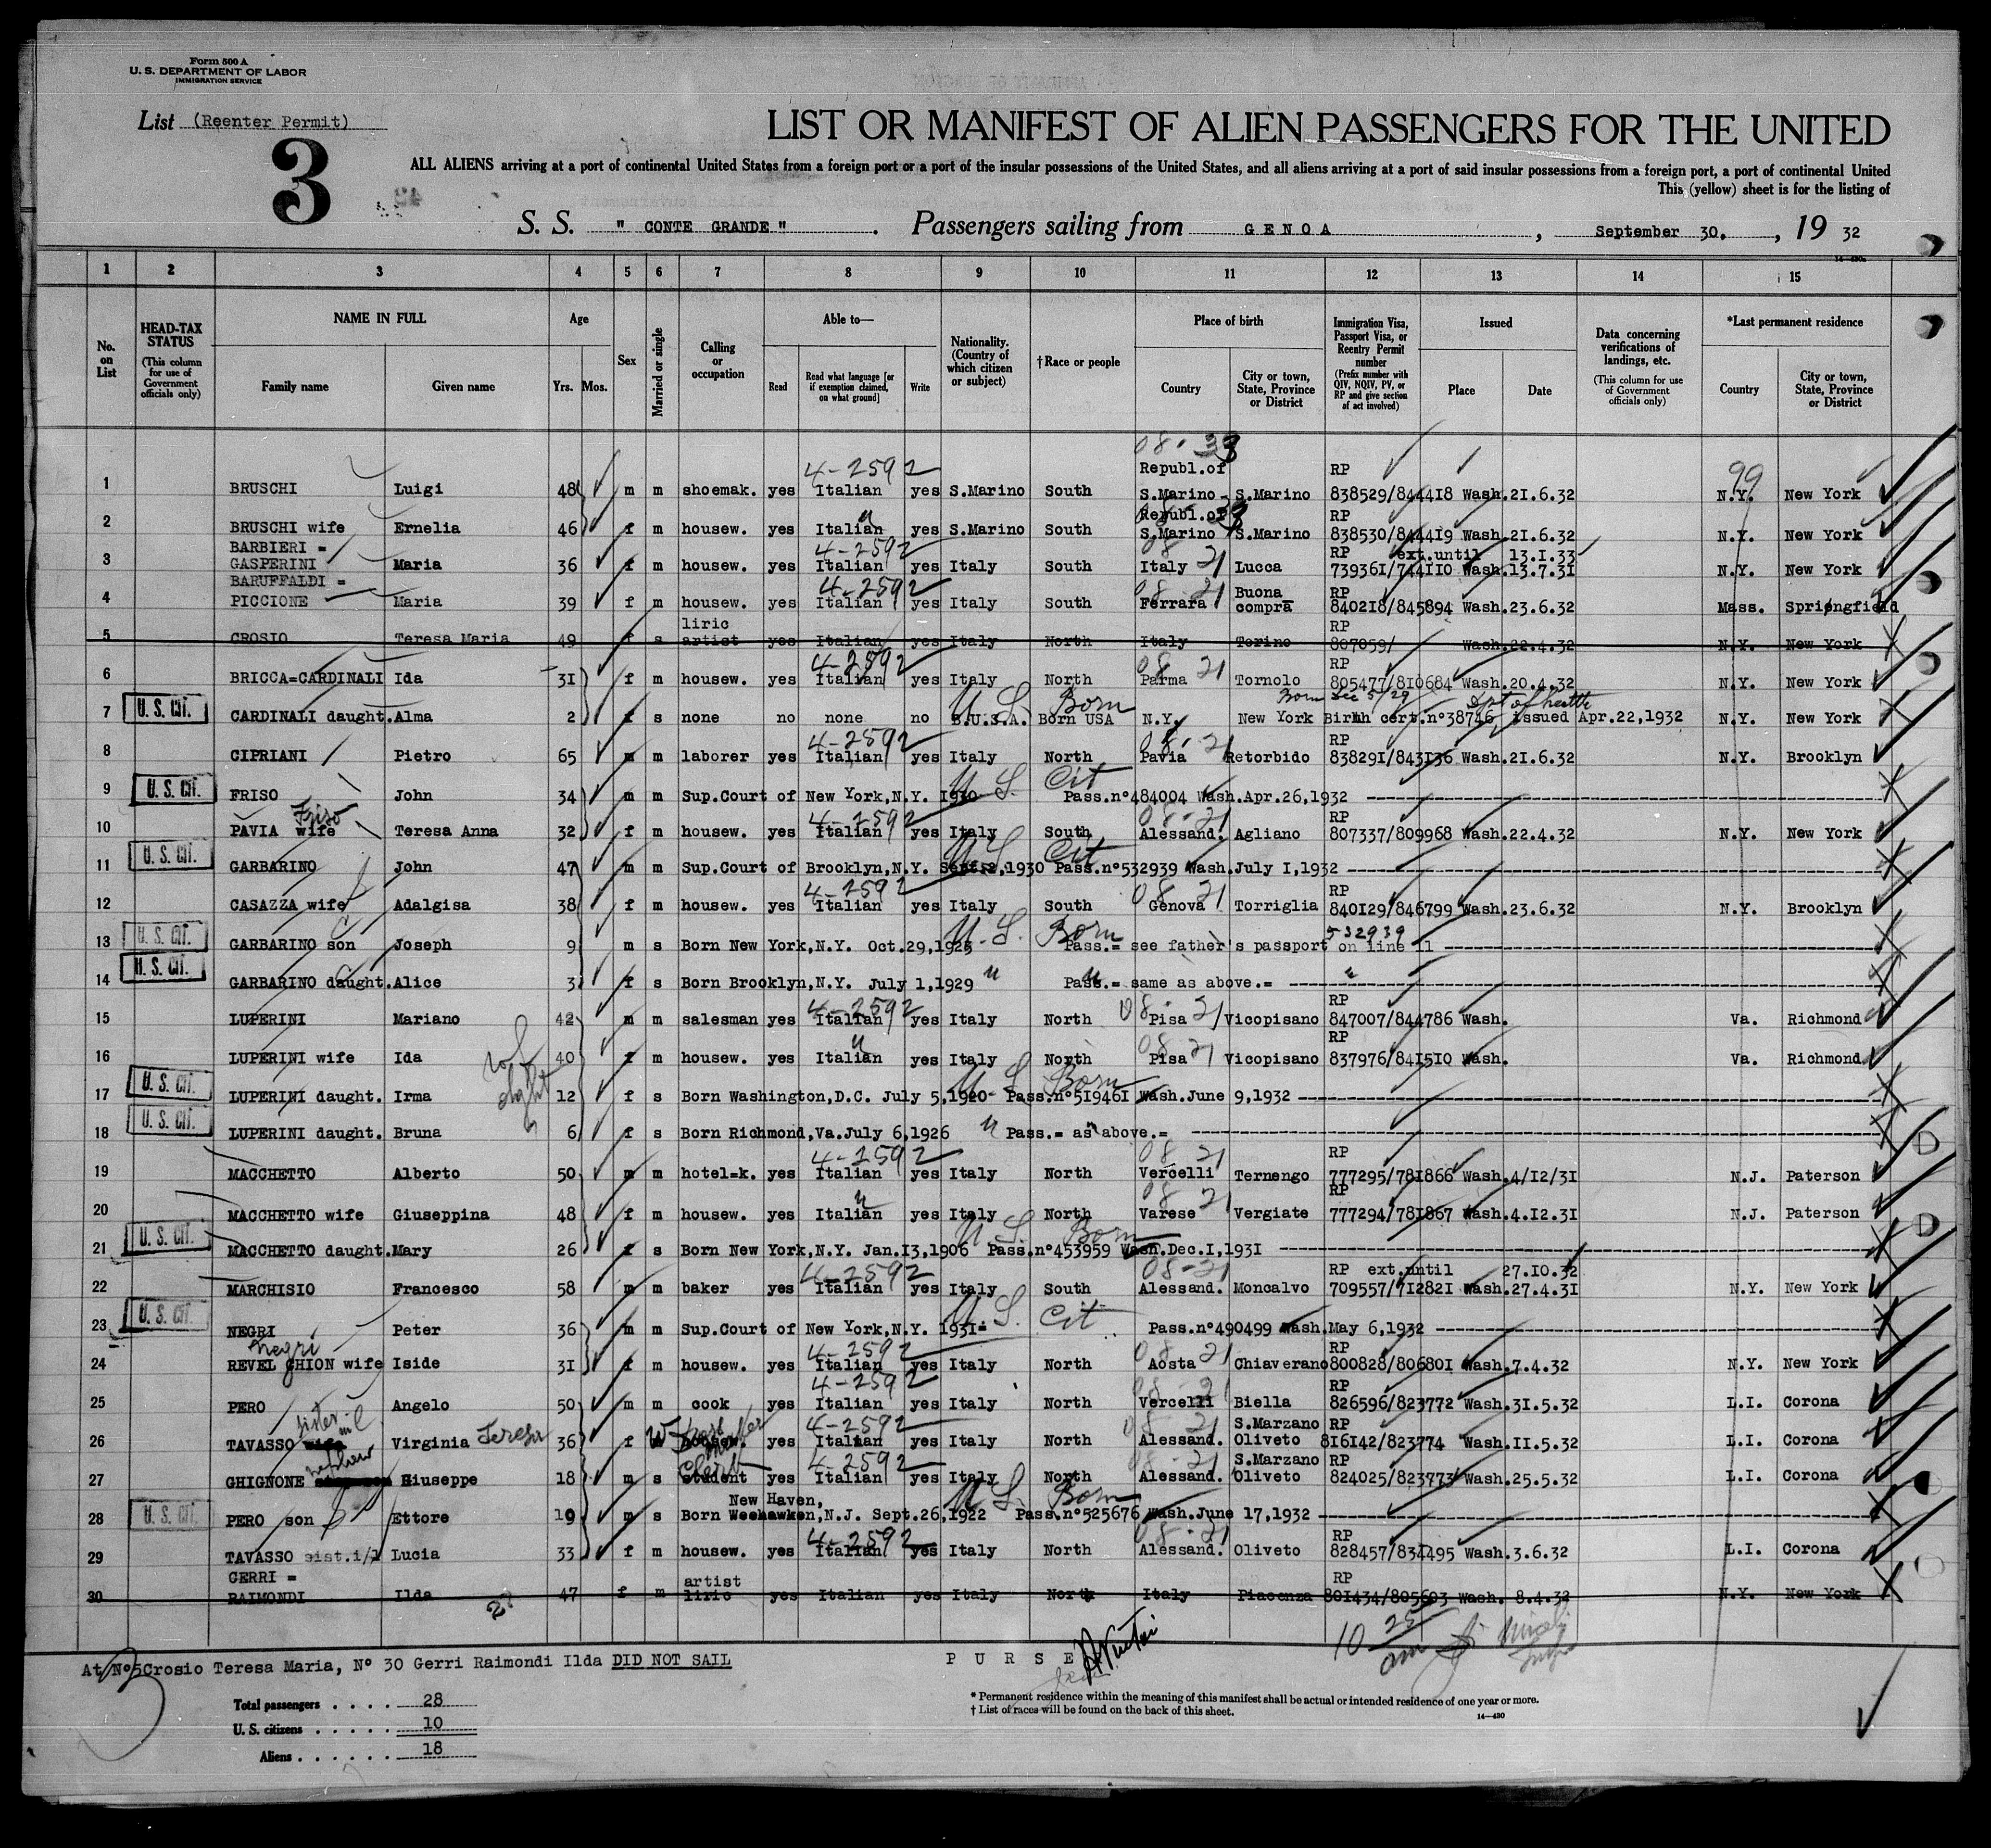 Form 500 A
U. S. DEPARTMENT OF LABOR
IMMIGRATION SERVICE
List (Reenter Permit)
3
LIST OR MANIFEST OF ALIEN PASSENGERS FOR THE UNITED
ALL ALIENS arriving at a port of continental United States from a foreign port or a port of the insular possessions of the United States, and all aliens arriving at a port of said insular possessions from a foreign port, a port of continental United
This (yellow) sheet is for the listing of
S. S. " CONTE GRANDE " . Passengers sailing from GENOA , September 30. , 19 32
14—430
1 2 3 4 5 6 7 8 9 10 11 12 13 14 15
No. on List
HEAD-TAX STATUS (This column for use of Government officials only)
NAME IN FULL Family name Given name
Age Yrs. Mos.
Sex
Married or single
Calling or occupation
Able to— Read Read what language [or if exemption claimed, on what ground] Write
Nationality. (Country of which citizen or subject)
† Race or people
Place of birth Country City or town, State, Province or District
Immigration Visa, Passport Visa, or Reentry Permit number (Prefix number with QIV, NQIV, PV, or RP and give section of act involved)
Issued Place Date
Data concerning verifications of landings, etc. (This column for use of Government officials only)
*Last permanent residence Country City or town, State, Province or District
08-33 99
4-2592 Republ.of RP
1 BRUSCHI Luigi 48 m m shoemak. yes Italian yes S.Marino South S.Marino - S.Marino 838529/844418 Wash.21.6.32 N.Y. New York
" Republ.of RP
2 BRUSCHI wife Ernelia 46 f m housew. yes Italian yes S.Marino South S.Marino S.Marino 838530/844419 Wash.21.6.32 N.Y. New York
BARBIERI = 4-2592 08 21 RP ext.until 13.I.33
3 GASPERINI Maria 36 f m housew. yes Italian yes Italy South Italy Lucca 739361/744110 Wash.13.7.31 N.Y. New York
BARUFFALDI = 4-2592 08 21 Buona RP
4 PICCIONE Maria 39 f m housew. yes Italian yes Italy South Ferrara compra 840218/845894 Wash.23.6.32 Mass. Springfield
liric RP
5 CROSIO Teresa Maria 49 f s artist yes Italian yes Italy North Italy Torino 807059/ Wash.22.4.32 N.Y. New York
4-2592 08 21 RP
6 BRICCA=CARDINALI Ida 31 f m housew. yes Italian yes Italy North Parma Tornolo 805477/810684 Wash.20.4.32 N.Y. New York
U.S. Born Born Dec 5/29 Dpt of health
7 U. S. Cit. CARDINALI daught. Alma 2 f s none no none no S.U.S.A. Born USA N.Y. New York Birth cert.n°38746, issued Apr.22,1932 N.Y. New York
4-2592 08 21 RP
8 CIPRIANI Pietro 65 m m laborer yes Italian yes Italy North Pavia Retorbido 838291/843136 Wash.21.6.32 N.Y. Brooklyn
U.S. Cit
9 U. S. Cit. FRISO John 34 m m Sup.Court of New York,N.Y. 1930 Pass.n°484004 Wash.Apr.26,1932
Friso 4-2592 08-21 RP
10 PAVIA wife Teresa Anna 32 f m housew. yes Italian yes Italy South Alessand. Agliano 807337/809968 Wash.22.4.32 N.Y. New York
U.S. Cit
11 U. S. Cit. GARBARINO John 47 m m Sup.Court of Brooklyn,N.Y. Sept.2,1930 Pass.n°532939 Wash.July I,1932
4-2592 08 21 RP
12 CASAZZA wife Adalgisa 38 f m housew. yes Italian yes Italy South Genova Torriglia 840129/846799 Wash.23.6.32 N.Y. Brooklyn
U.S. Born 532939
13 U. S. Cit. GARBARINO son Joseph 9 m s Born New York,N.Y. Oct.29,1923 Pass.= see father's passport on line 11
14 U. S. Cit. GARBARINO daught. Alice 3 f s Born Brooklyn,N.Y. July 1,1929 " Pass.= same as above.=
4-2592 08-21 RP
15 LUPERINI Mariano 42 m m salesman yes Italian yes Italy North Pisa Vicopisano 847007/844786 Wash. Va. Richmond
" 08 21 RP
16 LUPERINI wife Ida 40 f m housew. yes Italian yes Italy North Pisa Vicopisano 837976/841510 Wash. Va. Richmond
U.S. Born
17 U. S. Cit. LUPERINI daught. Irma 12 f s Born Washington,D.C. July 5,1920- Pass.n°519461 Wash.June 9,1932
18 U. S. Cit. LUPERINI daught. Bruna 6 f s Born Richmond,Va.July 6,1926 " Pass.= as above.=
4-2592 08 21 RP
19 MACCHETTO Alberto 50 m m hotel=k. yes Italian yes Italy North Vercelli Ternengo 777295/781866 Wash.4/12/31 N.J. Paterson
" 08 21 RP
20 MACCHETTO wife Giuseppina 48 f m housew. yes Italian yes Italy North Varese Vergiate 777294/781867 Wash.4.12.31 N.J. Paterson
U.S. Born
21 U. S. Cit. MACCHETTO daught. Mary 26 f s Born New York,N.Y. Jan.13,1906 Pass.n°453959 Wash.Dec.I,1931
4-2592 08-21 RP ext.until 27.10.32
22 MARCHISIO Francesco 58 m m baker yes Italian yes Italy South Alessand. Moncalvo 709557/712821 Wash.27.4.31 N.Y. New York
U.S. Cit
23 U. S. Cit. NEGRI Peter 36 m m Sup.Court of New York,N.Y. 1931= Pass.n°490499 Wash.May 6,1932
Negri 4-2592 08 21 RP
24 REVEL GHION wife Iside 31 f m housew. yes Italian yes Italy North Aosta Chiaverano 800828/806801 Wash.7.4.32 N.Y. New York
4-2592 08-21 RP
25 PERO Angelo 50 m m cook yes Italian yes Italy North Vercelli Biella 826596/823772 Wash.31.5.32 L.I. Corona
sister in l 4-2592 08 21 S.Marzano RP
26 TAVASSO Virginia Teresa 36 f W housew. yes Italian yes Italy North Alessand. Oliveto 816142/823774 Wash.11.5.32 L.I. Corona
nephew Clerk 4-2592 08-21 S.Marzano RP
27 GHIGNONE Giuseppe 18 m s student yes Italian yes Italy North Alessand. Oliveto 824025/823773 Wash.25.5.32 L.I. Corona
New Haven, U.S. Born
28 U. S. Cit. PERO son Ettore 19 m s Born Weehawken,N.J. Sept.26,1922 Pass.n°525676 Wash.June 17,1932
4-2592 08-21 RP
29 TAVASSO sist.i/l Lucia 33 f m housew. yes Italian yes Italy North Alessand. Oliveto 828457/834495 Wash.3.6.32 L.I. Corona
GERRI = artist RP
30 RAIMONDI Ilda 47 f m liric yes Italian yes Italy North Italy Piacenza 801434/805603 Wash. 8.4.32 N.Y. New York
10 25 am
At N°5Crosio Teresa Maria, N° 30 Gerri Raimondi Ilda DID NOT SAIL PURSER
Total passengers . . . . 28
U. S. citizens . . . . . 10
Aliens . . . . . . 18
* Permanent residence within the meaning of this manifest shall be actual or intended residence of one year or more.
† List of races will be found on the back of this sheet.
14—430